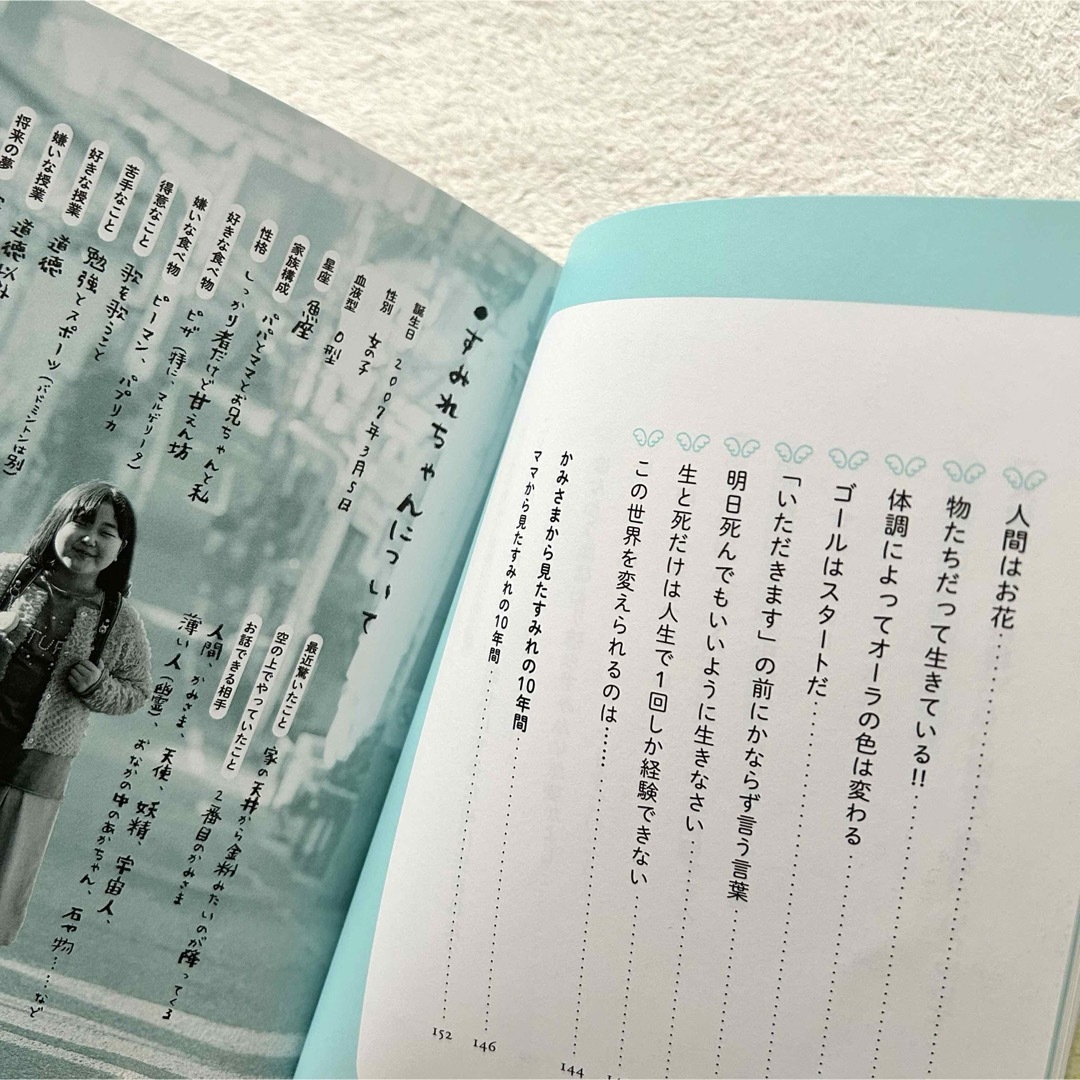 人間はお花
物たちだって生きている!!
体調によってオーラの色は変わる
ゴールはスタートだ
「いただきます」の前にかならず言う言葉
明日死んでもいいように生きなさい
生と死だけは人生で1回しか経験できない
この世界を変えられるのは……
144
かみさまから見たすみれの10年間
146
ママから見たすみれの10年間
152
●すみれちゃんについて
誕生日 2007年3月5日
性別 女の子
血液型 O型
星座 魚座
家族構成 パパとママとお兄ちゃんと私
性格 しっかり者だけど甘えん坊
好きな食べ物 ピザ(特に、マルゲリータ)
嫌いな食べ物 ピーマン、パプリカ
得意なこと 歌を歌うこと
苦手なこと 勉強とスポーツ(バドミントンは別)
好きな授業 道徳
嫌いな授業 道徳以外
将来の夢
最近驚いたこと 家の天井から金粉みたいのが降ってくる
空の上でやっていたこと 2番目のかみさま
お話できる相手 人間、かみさま、天使、妖精、宇宙人、
薄い人(幽霊)、おなかの中のあかちゃん、石や物……など